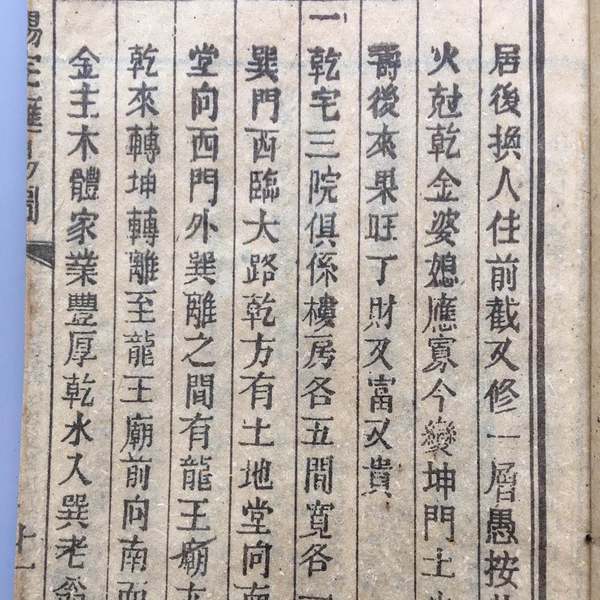 居後換人住前截又修一層愚按
火尅乾金婆媳應寡今變坤門土
壽後來果旺丁財又富又貴
一乾宅三院俱係樓房各五間寬各一
巽門西臨大路乾方有土地堂向南
堂向西門外巽離之間有龍王廟
乾來轉坤轉離至龍王廟前向南而
金主木體家業豐厚乾水入巽老翁
陽宅